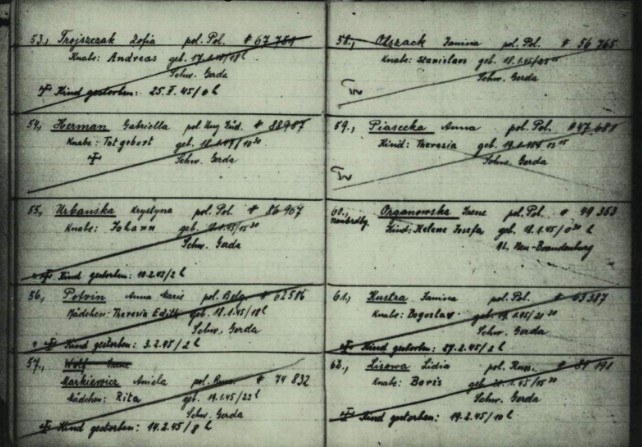 53., Trojszczak Zofia pol. Pol. # 67
Knabe: Andreas geb. 17.1.45/18 h
Schw. Gerda
Kind gestorben: 25.I.45/0 h
54., Herman Gabriella pol. Ung. Jüd. #
Knabe: Totgeburt geb. 18.1.45/10 30
Schw. Gerda
55., Urbanska Krystyna pol. Pol. # 86 907
Knabe: Johann geb.
Schw. Gerda
Kind gestorben: 10.2.45/2 h
56., Potvin Anna Marie pol. Belg. # 62586
Mädchen: Theresia Edith geb. 18.1.45/18 h
Schw. Gerda
Kind gestorben: 3.2.45/2 h
57., Wolf
Markiewicz Aniela pol. Russ. # 74 832
Mädchen: Rita geb. 19.1.45/22 h
Schw. Gerda
Kind gestorben: 14.2.45/8 h
58., Olszack Janina pol. Pol. # 56 765
Knabe: Stanislaus geb. 18.1.45/
Schw. Gerda
59., Piasecka Anna pol. Pol. # 47 681
Kind: Theresia geb.
Schw. Gerda
60., Organowska Irene pol. Pol. # 99 363
Kind: Helene Josefa geb. 18.1.45/0 30 h
Neu-Brandenburg
61., Kustra Janina pol. Pol. # 63387
Knabe: Boguslav geb. 19.1.45/21 30
Schw. Gerda
Kind gestorben: 27.2.45/2 h
62., Lisowa Lidia pol. Russ. #
Knabe: Boris geb.
Schw. Gerda
Kind gestorben: 19.2.45/10 h